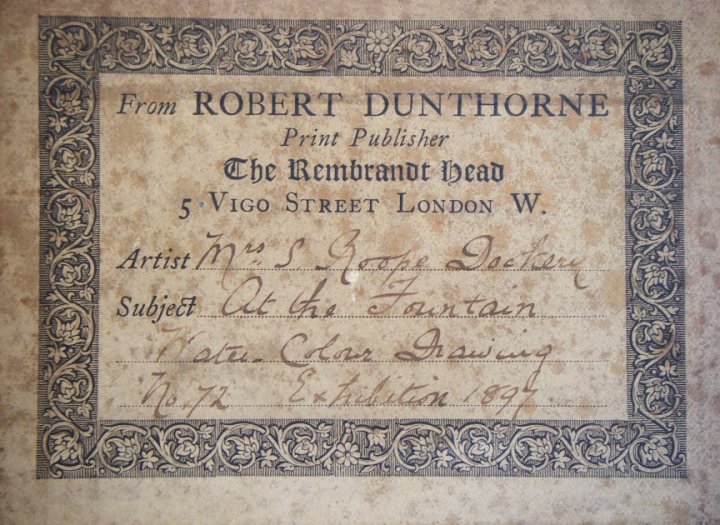 From ROBERT DUNTHORNE
Print Publisher
The Rembrandt Head
5 VIGO STREET LONDON W.
Artist Mrs. S. Roope Dockery
Subject At the Fountain
Water-Colour Drawing
No. 72 Exhibition 1897